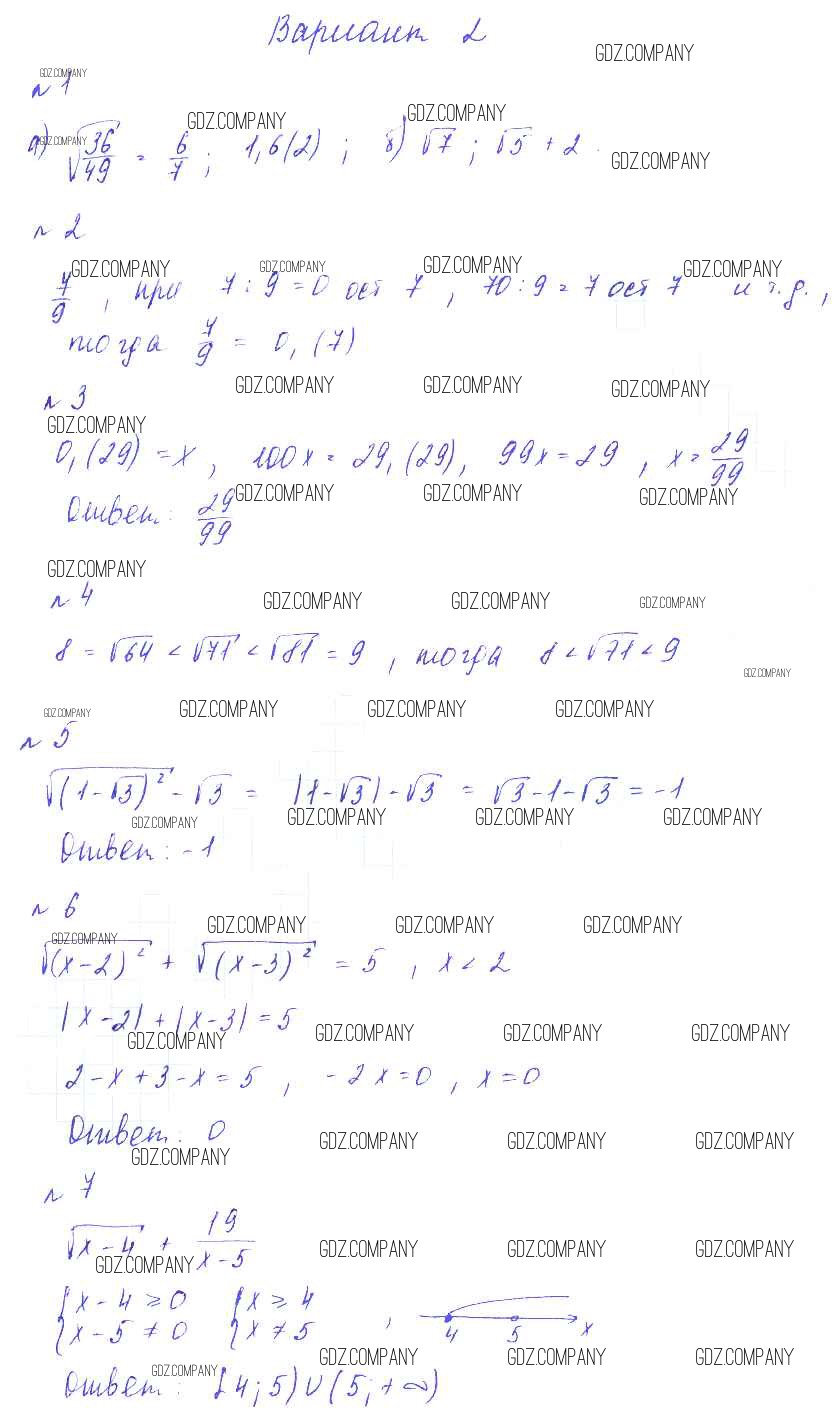 Вариант 2
GDZ.COMPANY
GDZ.COMPANY
№ 1
GDZ.COMPANY GDZ.COMPANY
GDZ.COMPANY GDZ.COMPANY
а) √(36/49) = 6/7 ; 1,6(2) ; б) √7 ; √5 + 2.
№ 2
GDZ.COMPANY GDZ.COMPANY GDZ.COMPANY GDZ.COMPANY
7/9 , при 7 : 9 = 0 ост 7 , 70 : 9 = 7 ост 7 и т.д. ,
тогда 7/9 = 0,(7)
GDZ.COMPANY GDZ.COMPANY GDZ.COMPANY
№ 3
GDZ.COMPANY
0,(29) = x , 100x = 29,(29), 99x = 29 , x = 29/99
GDZ.COMPANY GDZ.COMPANY GDZ.COMPANY
Ответ: 29/99
GDZ.COMPANY
№ 4
GDZ.COMPANY GDZ.COMPANY GDZ.COMPANY
8 = √64 < √71 < √81 = 9 , тогда 8 < √71 < 9
GDZ.COMPANY
GDZ.COMPANY GDZ.COMPANY GDZ.COMPANY GDZ.COMPANY
№ 5
√(1-√3)² - √3 = |1-√3| - √3 = √3 - 1 - √3 = -1
GDZ.COMPANY GDZ.COMPANY GDZ.COMPANY GDZ.COMPANY
Ответ: -1
№ 6
GDZ.COMPANY GDZ.COMPANY GDZ.COMPANY
GDZ.COMPANY
√(x-2)² + √(x-3)² = 5 , x < 2
|x-2| + |x-3| = 5
GDZ.COMPANY GDZ.COMPANY GDZ.COMPANY GDZ.COMPANY
2 - x + 3 - x = 5 , -2x = 0 , x = 0
Ответ: 0
GDZ.COMPANY GDZ.COMPANY GDZ.COMPANY
GDZ.COMPANY
№ 7
√x-4 + 19/(x-5)
GDZ.COMPANY GDZ.COMPANY GDZ.COMPANY
GDZ.COMPANY
{ x - 4 ≥ 0 { x ≥ 4
{ x - 5 ≠ 0 { x ≠ 5 , 4 5 x
GDZ.COMPANY GDZ.COMPANY GDZ.COMPANY
GDZ.COMPANY
Ответ: [4;5)∪(5;+∞)